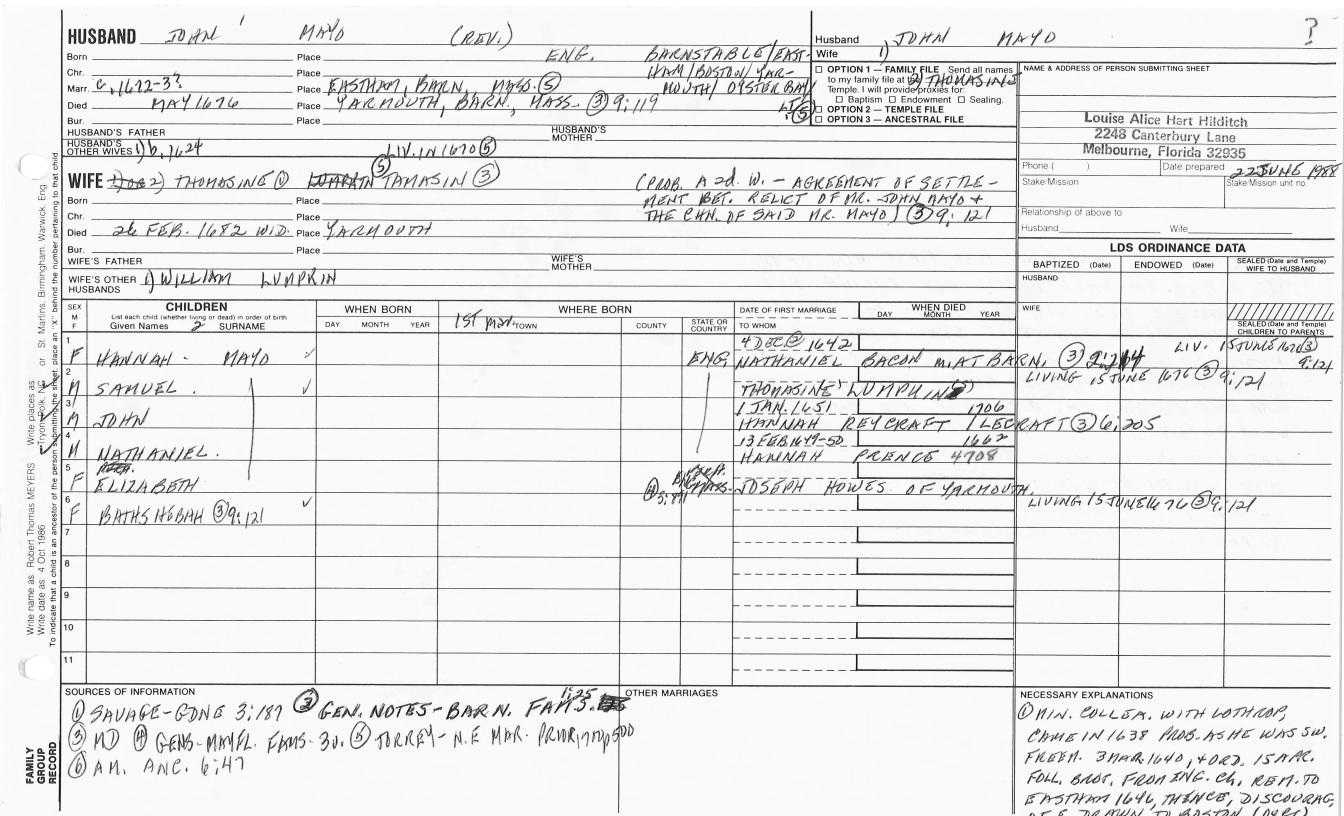 HUSBAND JOHN MAYO (REV.)
Born Place ENG. BARNSTABLE/EAST-
Chr. Place HAM/BOSTON/YAR-
Marr. c. 1622-3? Place EASTHAM, BARN., MASS. (5) MOUTH/OYSTER BAY,
Died MAY 1676 Place YARMOUTH, BARN., MASS. (3) 9:119 L.I. (5)
Bur. Place
HUSBAND'S FATHER HUSBAND'S MOTHER
HUSBAND'S OTHER WIVES 1) b. 1624 LIV. IN 1670 (5)
Husband JOHN MAYO ?
Wife 1)
2) THOMASINE
OPTION 1 — FAMILY FILE Send all names
to my family file at the
Temple. I will provide proxies for:
Baptism Endowment Sealing.
OPTION 2 — TEMPLE FILE
OPTION 3 — ANCESTRAL FILE
NAME & ADDRESS OF PERSON SUBMITTING SHEET
Louise Alice Hart Hilditch
2248 Canterbury Lane
Melbourne, Florida 32935
Phone ( ) Date prepared 22 JUNE 1988
Stake/Mission Stake/Mission unit no.
Relationship of above to
Husband Wife
WIFE 2) THOMASINE (1) (5) LUMPKIN TAMASIN (3) (PROB. A 2d. W. — AGREEMENT OF SETTLE-
Born Place MENT BET. RELICT OF MR. JOHN MAYO +
Chr. Place THE CHN. OF SAID MR. MAYO) (3) 9:121
Died 26 FEB. 1682 WID. Place YARMOUTH
Bur. Place
WIFE'S FATHER WIFE'S MOTHER
WIFE'S OTHER HUSBANDS 1) WILLIAM LUMPKIN
LDS ORDINANCE DATA
BAPTIZED (Date) ENDOWED (Date) SEALED (Date and Temple) WIFE TO HUSBAND
HUSBAND
WIFE
SEALED (Date and Temple) CHILDREN TO PARENTS
SEX M F
CHILDREN
List each child (whether living or dead) in order of birth
Given Names SURNAME
WHEN BORN
DAY MONTH YEAR
WHERE BORN
1ST Mar. TOWN COUNTY STATE OR COUNTRY
DATE OF FIRST MARRIAGE
TO WHOM
WHEN DIED
DAY MONTH YEAR
1 4 DEC @ 1642
F HANNAH - MAYO ✓ ENG. NATHANIEL BACON M. AT BARN. (3) LIV. 15 JUNE 1676 (3) 9:121
2 LIVING 15 JUNE 1676 (3) 9:121
M SAMUEL. ✓ THOMASINE LUMPKIN
3 1 JAN. 1651 1706
M JOHN HANNAH REYCRAFT / LECRAFT (3) 6:205
4 13 FEB 1649-50 1662
M NATHANIEL. HANNAH PRENCE 4708
5
F ELIZABETH JOSEPH HOWES OF YARMOUTH.
6 LIVING 15 JUNE 1676 (3) 9:121
F BATHSHEBAH (3) 9:121 ✓
7
8
9
10
11
Write name as: Robert Thomas MEYERS Write places as: Tryon, Polk, NC or St. Martins, Birmingham, Warwick, Eng.
Write date as: 4 Oct 1986
To indicate that a child is an ancestor of the person submitting the sheet, place an "X" behind the number pertaining to that child.
FAMILY GROUP RECORD
SOURCES OF INFORMATION
(1) SAVAGE-GDNE 3:187 (2) GEN. NOTES-BARN. FAMS. 1:25
(3) MD (4) GENS-MAYFL. FAMS-3v. (5) TORREY-N.E MAR. PRIOR, 1700, p500
(6) AM. ANC. 6:47
OTHER MARRIAGES
NECESSARY EXPLANATIONS
(1) MIN. COLLEA. WITH LOTHROP,
CAME IN 1638 PROB. AS HE WAS SW.
FREEM. 3 MAR. 1640, + ORD. 15 APR.
FOLL. BROT. FROM ENG. Ch., REM. TO
EASTHAM 1646, THENCE, DISCOURAG,